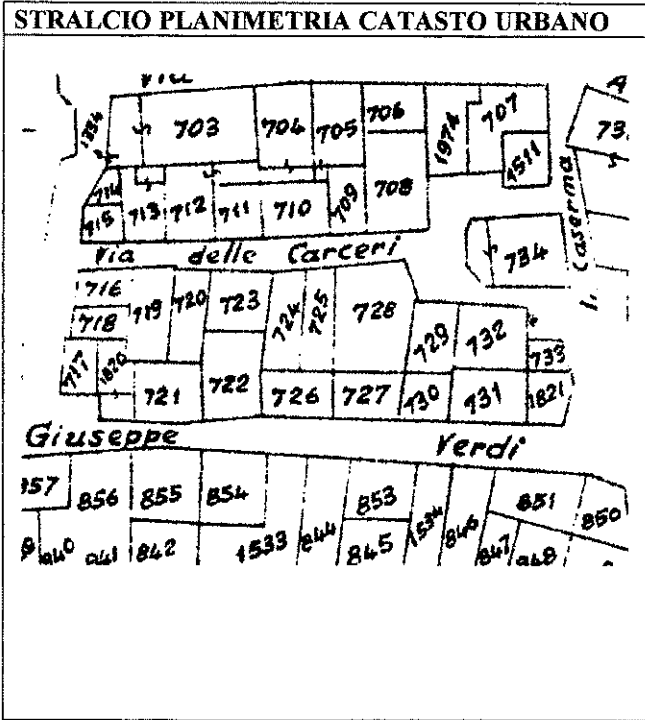 STRALCIO PLANIMETRIA CATASTO URBANO
Via
703 704 705 706 1974 707
1334
1511
714 713 712 711 710 709 708
715
Via delle Carceri
734
Caserma
716 719 720 723 724 725 728
718
729 732
717 1820 733
721 722 726 727 730 731 1821
Giuseppe Verdi
856 855 854 853 851 850
842 1533 844 845 1534 846 847